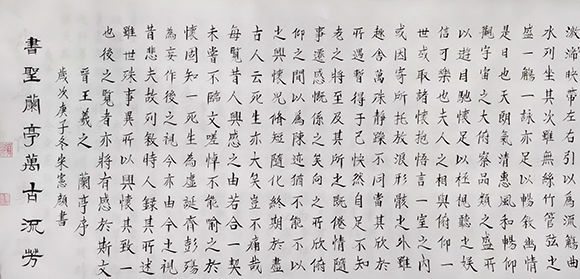 激湍映帶左右引以為流觴曲
水列坐其次雖無絲竹管弦之
盛一觴一詠亦足以暢敘幽情
是日也天朗氣清惠風和暢仰
觀宇宙之大俯察品類之盛所
以遊目騁懷足以極視聽之娛
信可樂也夫人之相與俯仰一
世或取諸懷抱悟言一室之內
或因寄所托放浪形骸之外雖
趣舍萬殊靜躁不同當其欣於
所遇暫得於己快然自足不知
老之將至及其所之既倦情隨
事遷感慨係之矣向之所欣俯
仰之間以為陳迹猶不能不以
之興懷況脩短隨化終期於盡
古人云死生亦大矣豈不痛哉
每覽昔人興感之由若合一契
未嘗不臨文嗟悼不能喻之於
懷固知一死生為虛誕齊彭殤
為妄作後之視今亦由今之視
昔悲夫故列敘時人錄其所述
雖世殊事異所以興懷其致一
也後之覽者亦將有感於斯文
晉王羲之 蘭亭序
歲次庚子冬宋憲顏書
書聖蘭亭萬古流芳